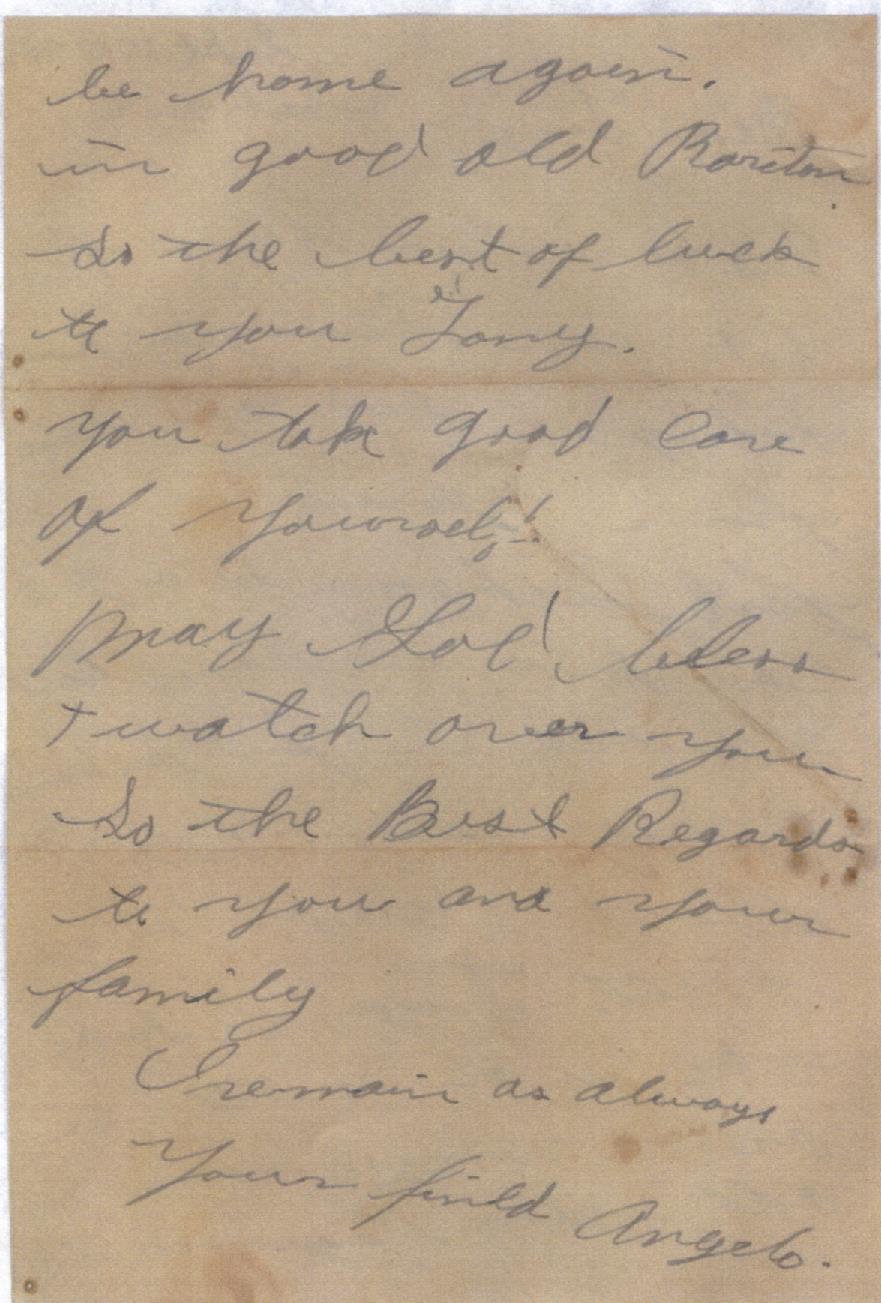 be home again.
in good old Raritan
So the best of luck
to you Tony.
you take good care
of yourself!
may God bless
+ watch over you
So the Best Regards
to you and your
family
I remain as always
Your finld Angelo.